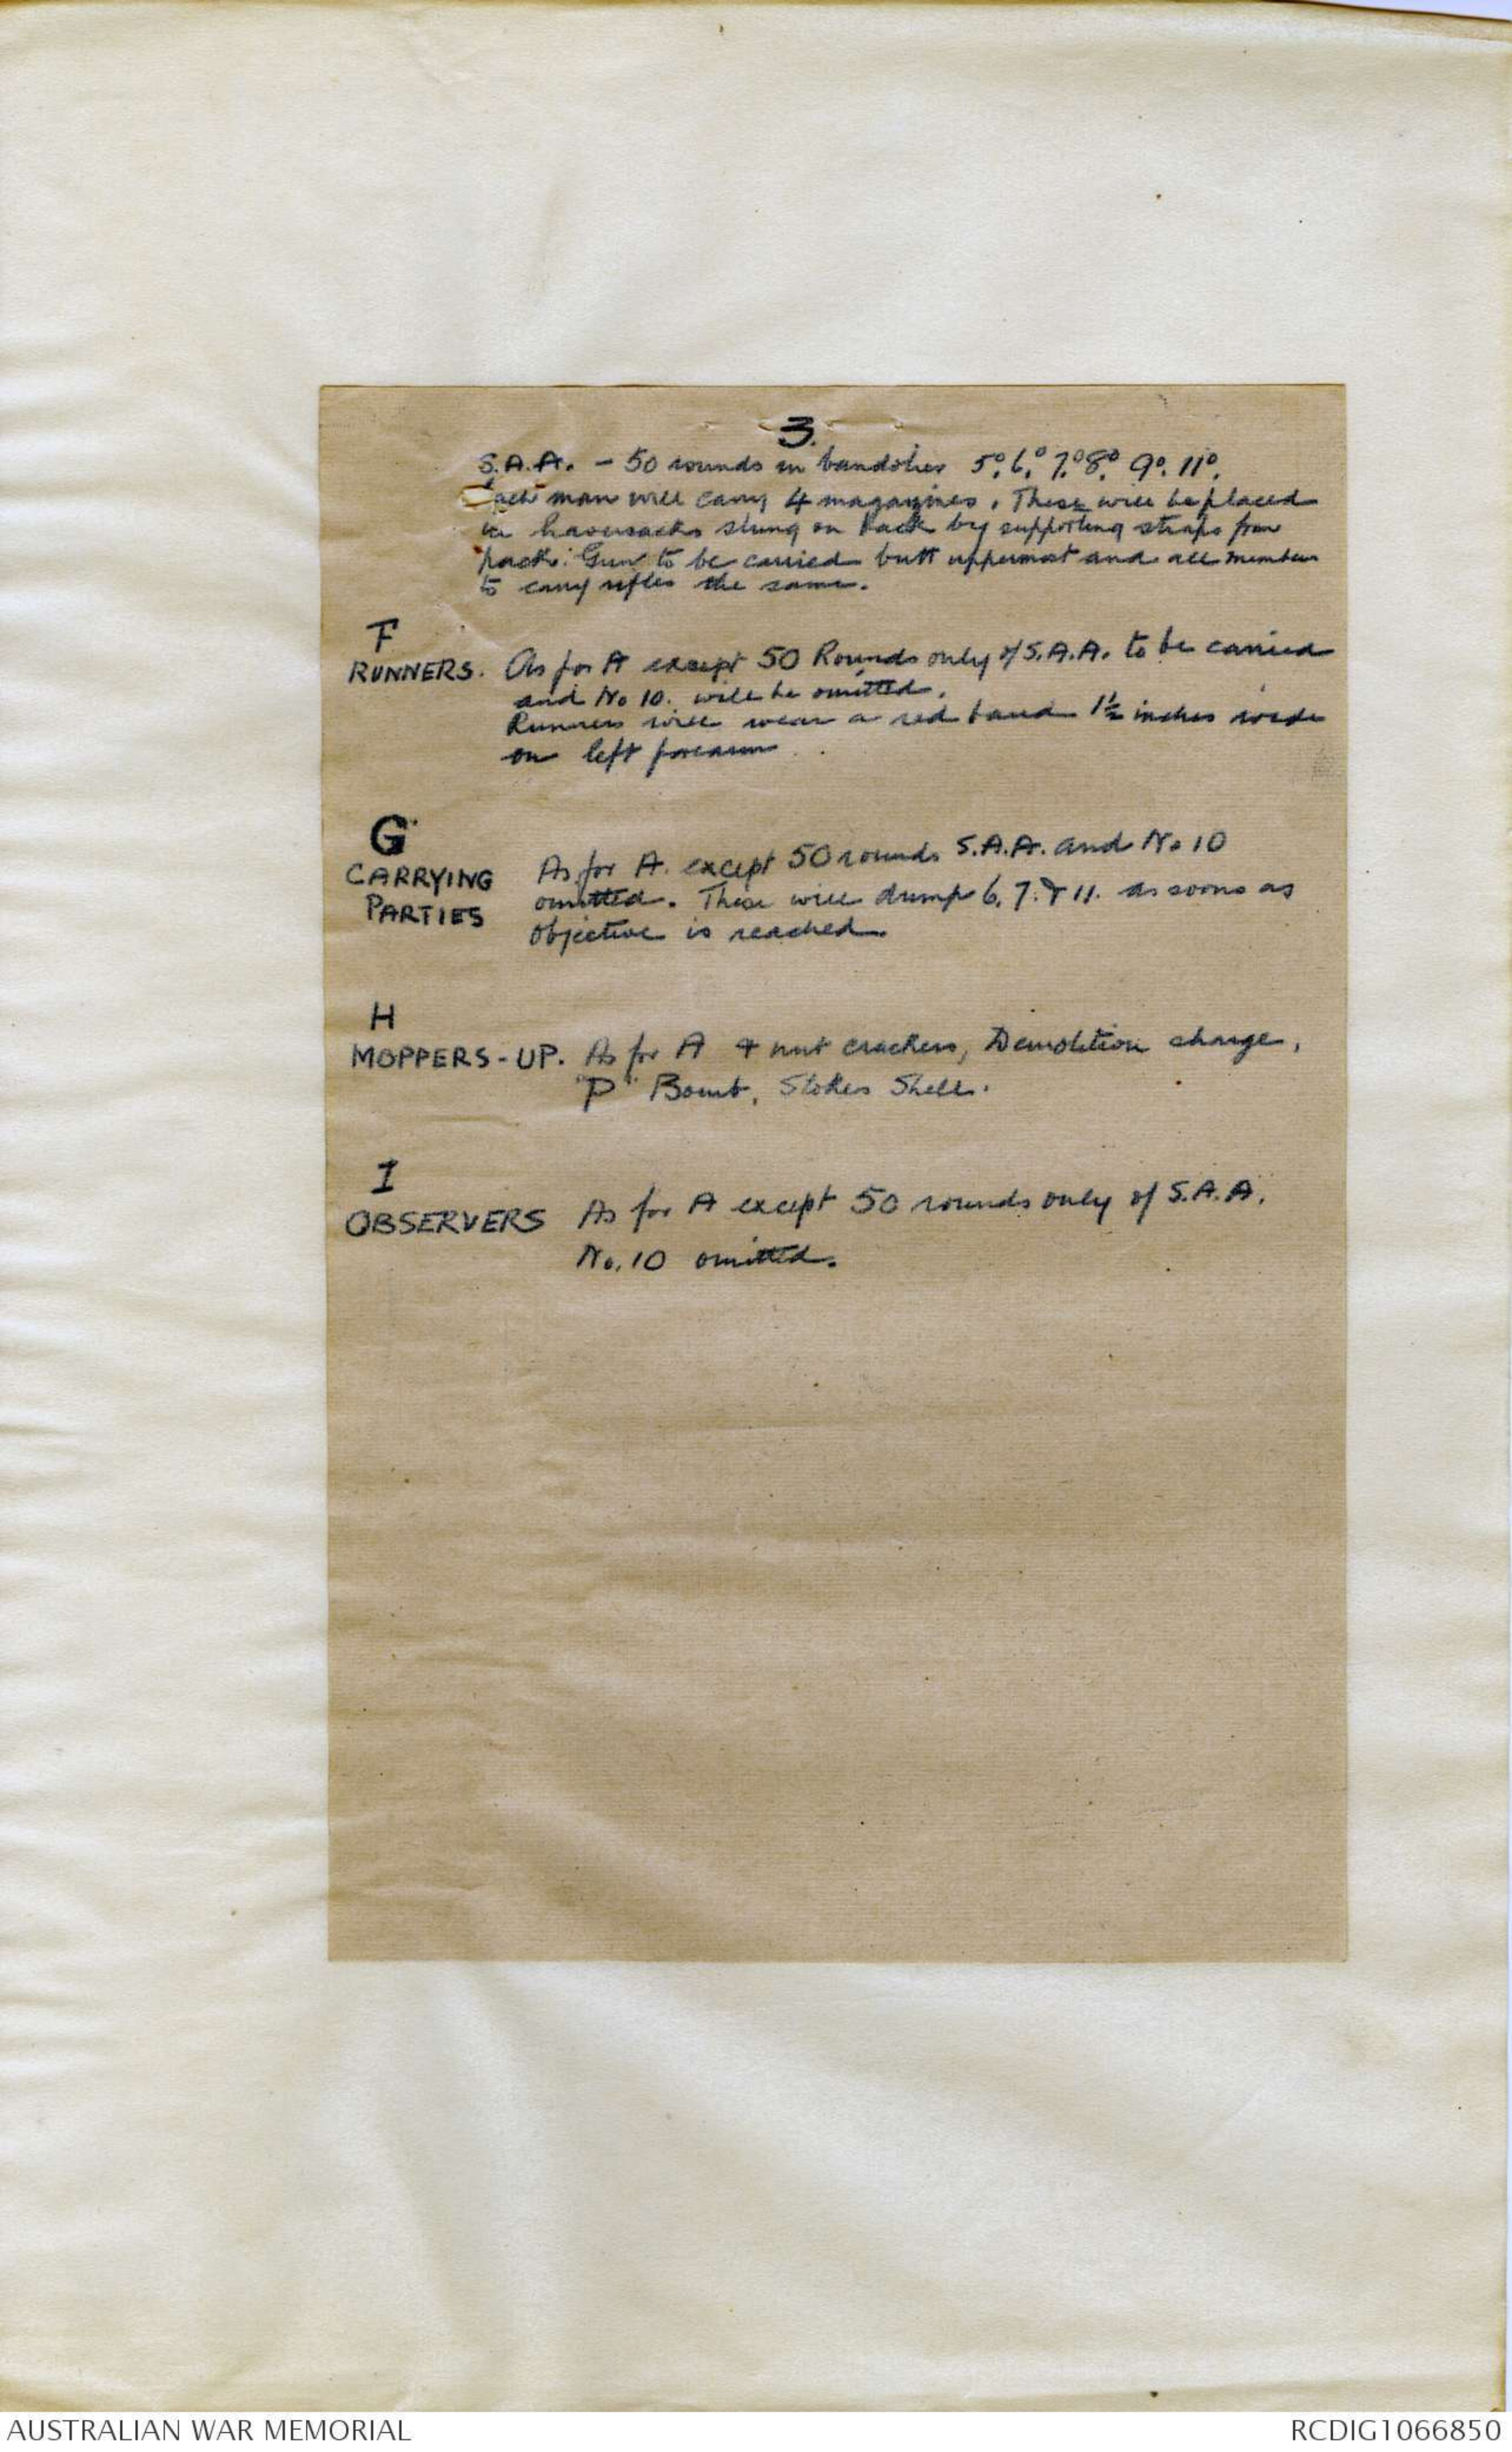 3.
S.A.A. - 50 rounds in bandolier 5º, 6º, 7º, 8º, 9º, 11º,
Each man will carry 4 magazines. These will be placed
in haversacks slung on back by supporting straps from
pack: Gun to be carried butt uppermost and all members
to carry rifles the same.
F
RUNNERS. As for A except 50 Rounds only of S.A.A. to be carried
and No 10. will be omitted.
Runners will wear a red band 1½ inches wide
on left forearm.
G
CARRYING PARTIES As for A. except 50 rounds S.A.A. and No 10
omitted. These will dump 6. 7. & 11. as soons as
Objective is reached.
H
MOPPERS-UP. As for A + nut crackers, Demolition charge,
"P" Bomb, Stokes Shell.
I
OBSERVERS As for A except 50 rounds only of S.A.A.
No. 10 omitted.
AUSTRALIAN WAR MEMORIAL
RCDIG1066850